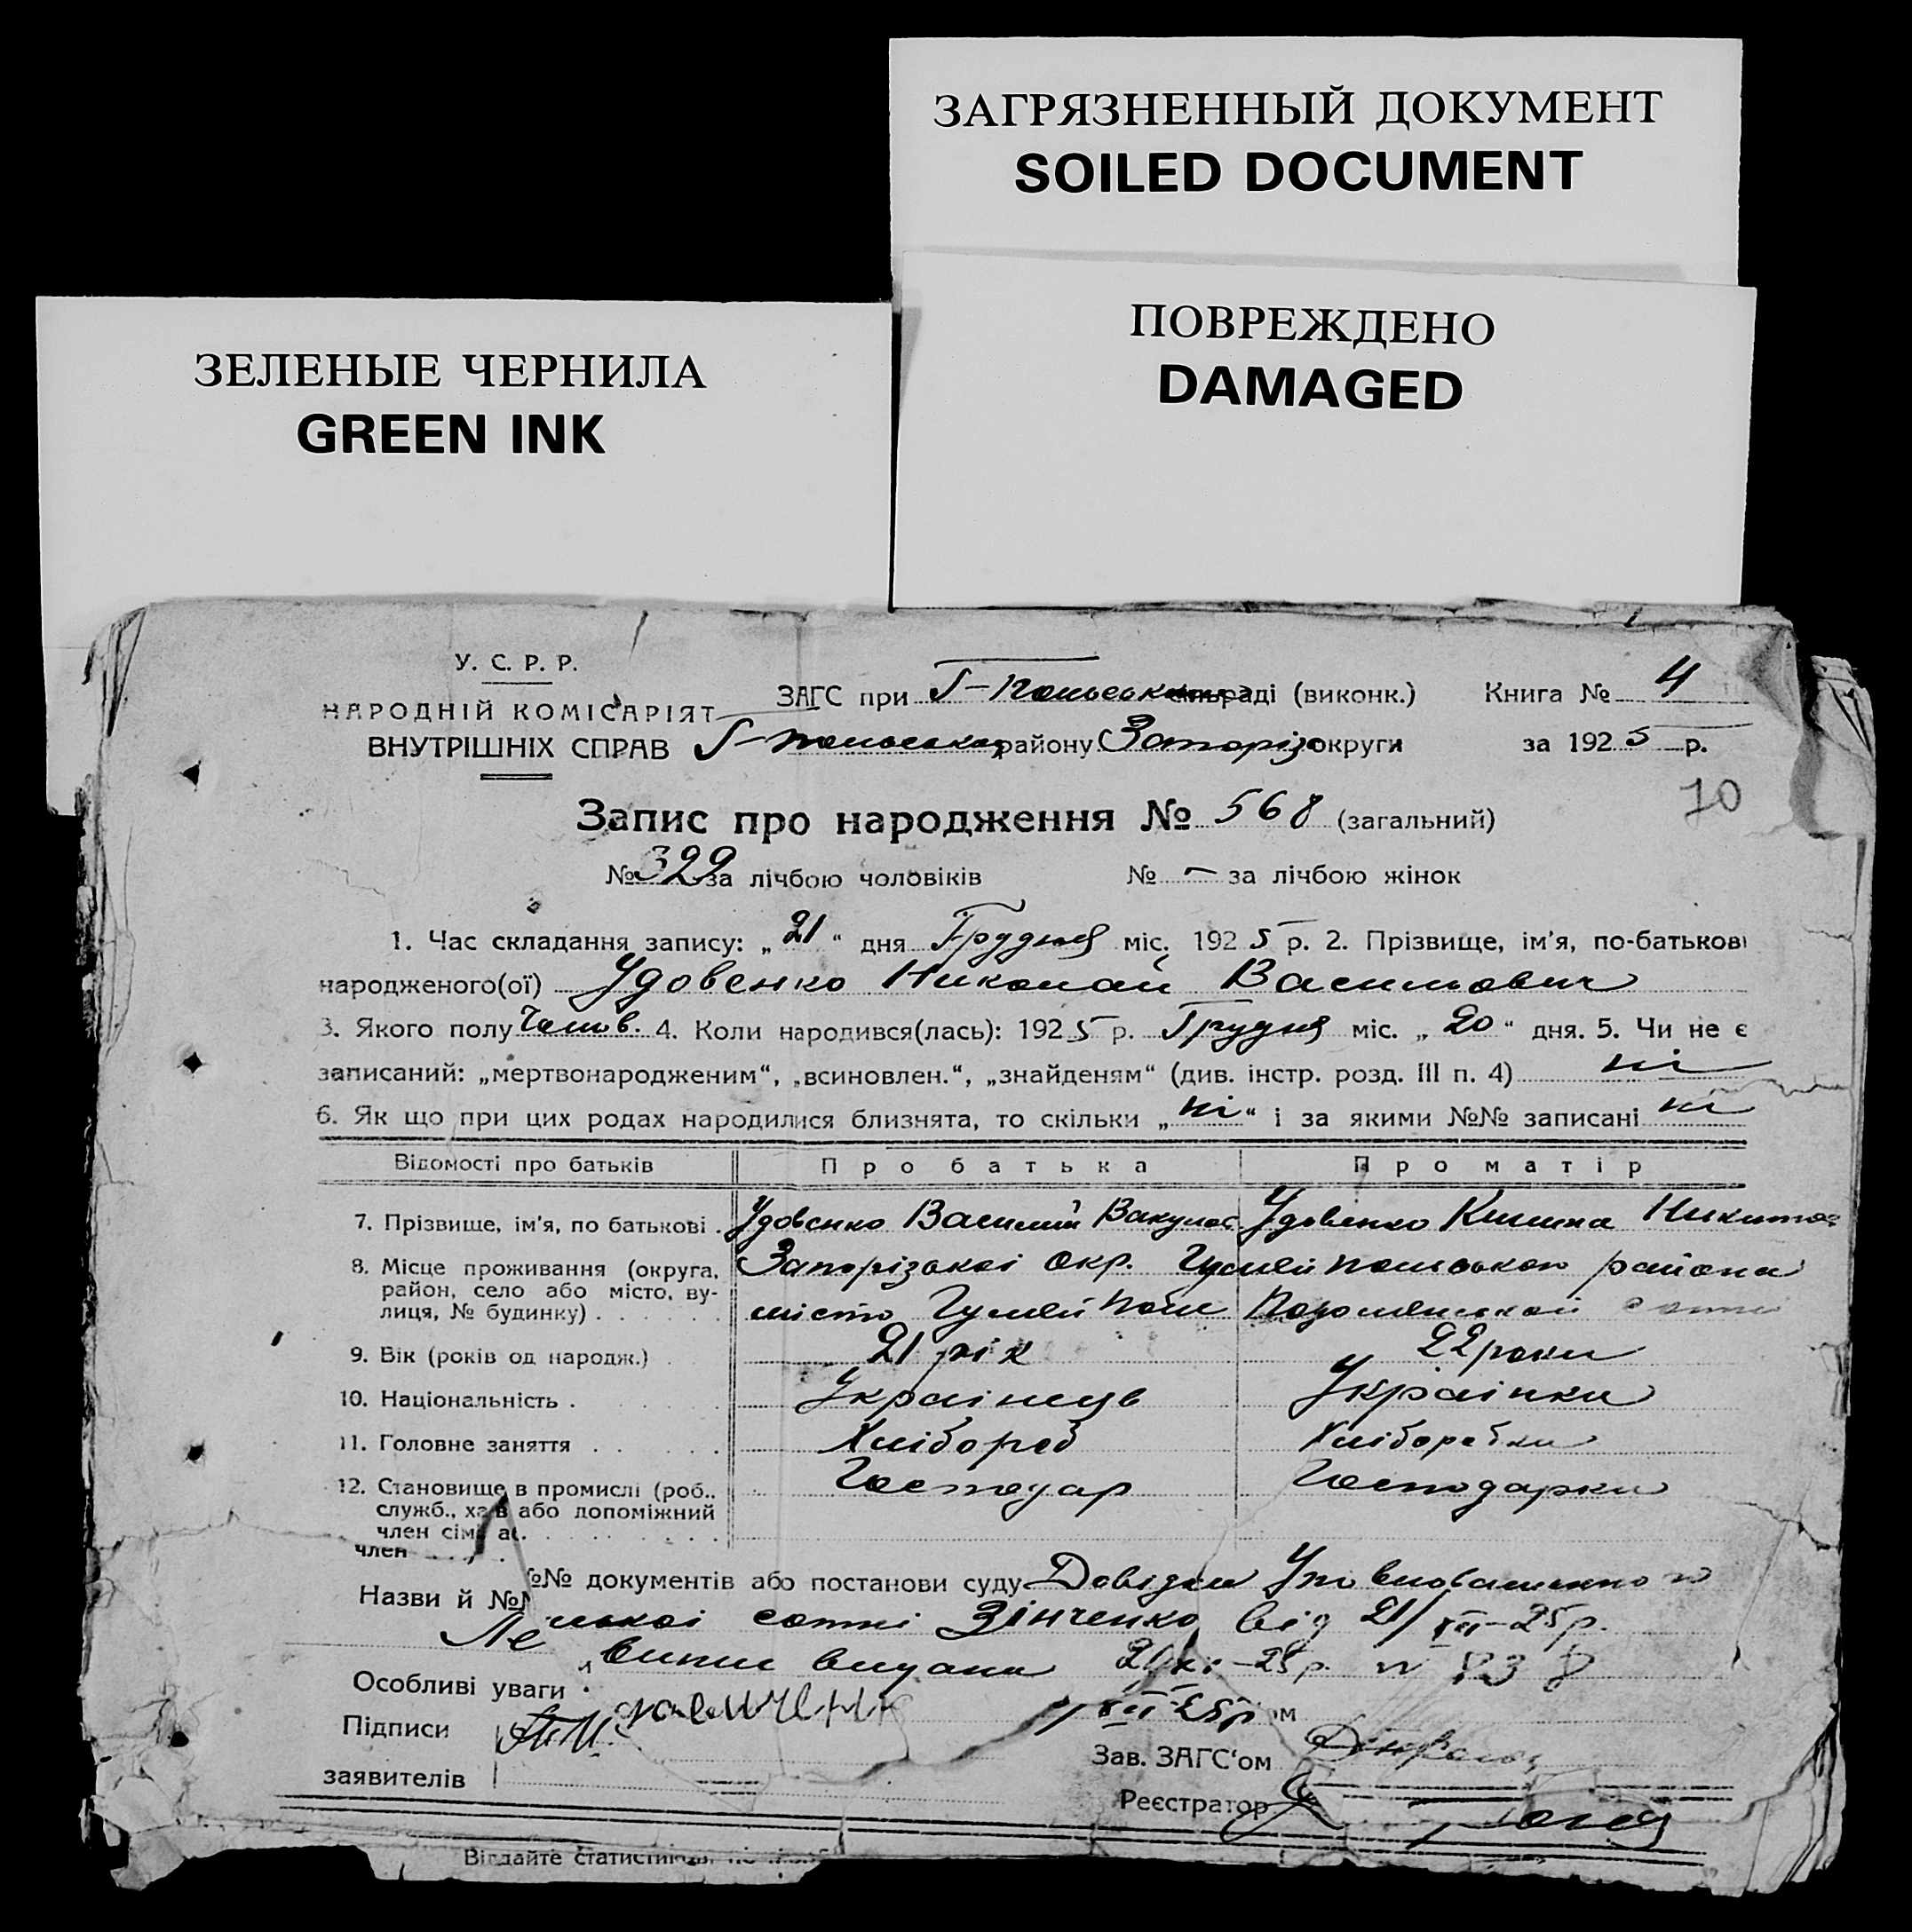 ЗАГРЯЗНЕННЫЙ ДОКУМЕНТ
SOILED DOCUMENT
ПОВРЕЖДЕНО
DAMAGED
ЗЕЛЕНЫЕ ЧЕРНИЛА
GREEN INK
У. С. Р. Р.
НАРОДНІЙ КОМІСАРІЯТ
ВНУТРІШНІХ СПРАВ
ЗАГС при Г-Польськ раді (виконк.) Книга № 4
Г-польського району Запоріз округи за 1925 р.
70
Запис про народження № 568 (загальний)
№ 322 за лічбою чоловіків № — за лічбою жінок
1. Час складання запису: „21“ дня Грудня міс. 1925 р. 2. Прізвище, ім'я, по-батькові
народженого(ої) Удовенко Николай Васильович
3. Якого полу Чолов. 4. Коли народився(лась): 1925 р. Грудня міс. „20“ дня. 5. Чи не є
записаний: „мертвонародженим“, „всиновлен.“, „знайденям“ (див. інстр. розд. III п. 4) ні
6. Як що при цих родах народилися близнята, то скільки „ні“ і за якими №№ записані ні
Відомості про батьків Про батька Про матір
7. Прізвище, ім'я, по батькові . Удовенко Василий Вакулов Удовенко Килина Никитов
8. Місце проживання (округа, Запорізької Окр. Гуляй польського района
район, село або місто, ву-
лиця, № будинку) . . . . . . місто Гуляй Поле сотні
9. Вік (років од народж.) . 21 рік 22 роки
10. Національність . . . . . Українець Українка
11. Головне заняття . . . . . Хлібороб Хліборобка
12. Становище в промислі (роб., Господар Господарка
служб., хаз або допоміжний
член сім
член
Назви й №№ документів або постанови суду Довідка Уповноваженого
сотні Зінченко від 21/XII-25р.
Особливі уваги видана
Підписи XII 25р
заявителів
Зав. ЗАГС‘ом
Реєстратор
Віддайте статистичн